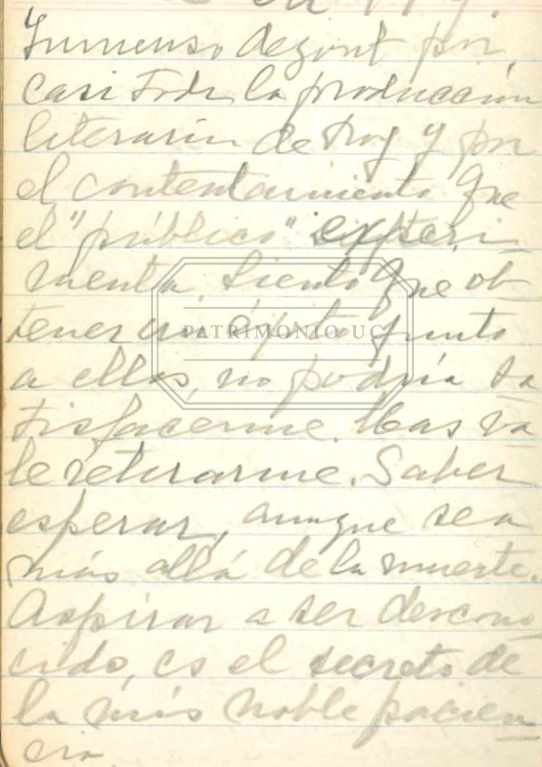 Inmenso dégout por
casi toda la producción
literaria de hoy y por
el contentamiento que
el "público" experi
menta. Siento que ob
tener un éxito junto
a ellos, no podría sa
tisfacerme. Mas va
le retirarme. Saber
esperar, aunque sea
más allá de la muerte.
Aspirar a ser descono
cido, es el secreto de
la más noble pacien
cia
PATRIMONIO UC